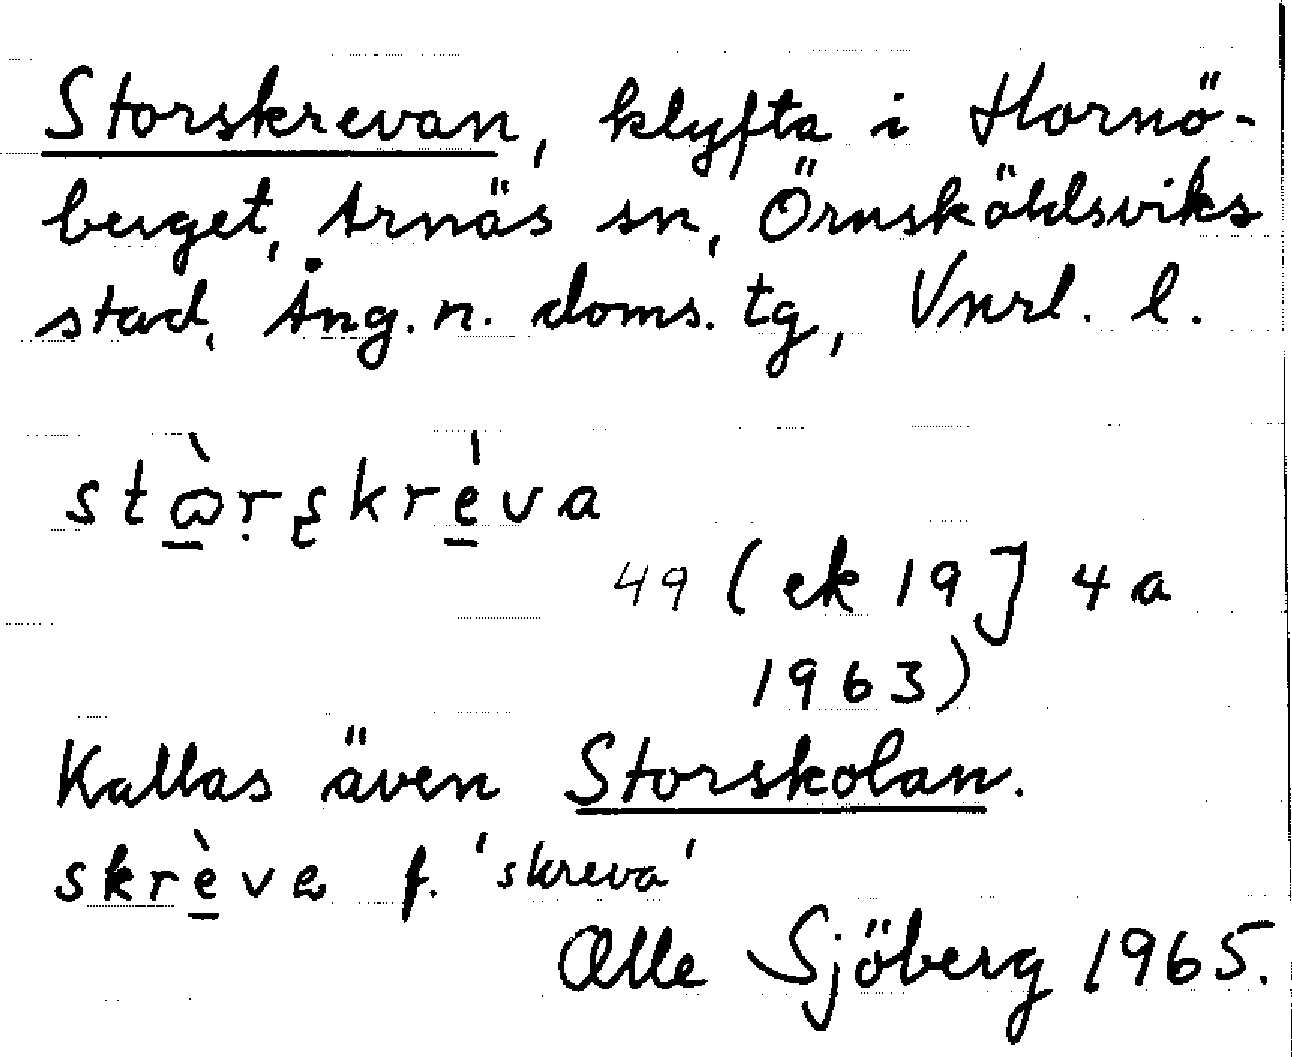 Storskrevan, klyfta i Hornö-
berget, Arnäs sn, Örnsköldsviks
stad, Ång. n. doms. tg, Vnrl. l.
stὼ̱ṛʂkrè̱va
49 (ek 19] 4a
1963)
Kallas även Storskolan.
skrè̱va f. 'skreva'
Olle Sjöberg 1965.